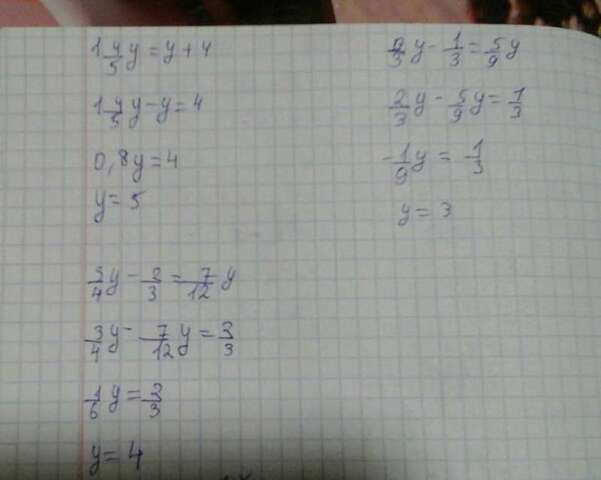 1 4/5 y = y + 4
1 4/5 y - y = 4
0,8y = 4
y = 5
3/4 y - 2/3 = 7/12 y
3/4 y - 7/12 y = 2/3
1/6 y = 2/3
y = 4
2/3 y - 1/3 = 5/9 y
2/3 y - 5/9 y = 1/3
1/9 y = 1/3
y = 3